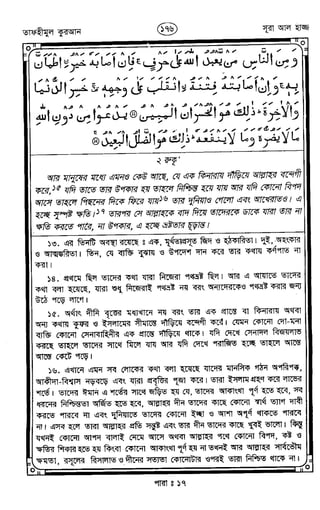 তাফহীমুল কুরআন
১৭৬
সূরা আল হাজ্জ
وَمِنَ النَّاسِ مَنْ يَعْبُدُ اللهَ عَلَى حَرْفٍ ۚ فَإِنْ أَصَابَهُ خَيْرٌ اطْمَأَنَّ
بِهِ ۚ وَإِنْ أَصَابَتْهُ فِتْنَةٌ انْقَلَبَ عَلَى وَجْهِهِ ۚ خَسِرَ الدُّنْيَا
وَالْآخِرَةَ ۚ ذَٰلِكَ هُوَ الْخُسْرَانُ الْمُبِينُ ۝ يَدْعُوا مِنْ دُونِ اللهِ
مَا لَا يَضُرُّهُ وَمَا لَا يَنْفَعُهُ ۚ ذَٰلِكَ هُوَ الضَّلَالُ الْبَعِيدُ ۝
২ রুকূ'
আর মানুষের মধ্যে এমনও কেউ আছে, যে এক কিনারায় দাঁড়িয়ে আল্লাহর বন্দেগী
করে,১৫ যদি তাতে তার উপকার হয় তাহলে নিশ্চিন্ত হয়ে যায় আর যদি কোনো বিপদ
আসে তাহলে পিছনের দিকে ফিরে যায়১৬ তার দুনিয়াও গেলো এবং আখেরাতও। এ
হচ্ছে সুস্পষ্ট ক্ষতি।১৭ তারপর সে আল্লাহকে বাদ দিয়ে তাদেরকে ডাকে যারা তার না
ক্ষতি করতে পারে, না উপকার, এ হচ্ছে ভ্রষ্টতার চূড়ান্ত।
১৩. এর তিনটি অবস্থা রয়েছে : এক, মূর্খতাপ্রসূত জিদ ও হঠকারিতা। দুই, অহংকার
ও আত্মম্ভরিতা। তিন, যে ব্যক্তি বুঝায় ও উপদেশ দান করে তার কথায় কর্ণপাত না
করা।
১৪. প্রথমে ছিল তাদের কথা যারা নিজেরা পথভ্রষ্ট ছিল। আর এ আয়াতে তাদের
কথা বলা হয়েছে, যারা শুধু নিজেরাই পথভ্রষ্ট নয় বরং অন্যদেরকেও পথভ্রষ্ট করার জন্য
উঠে পড়ে লাগে।
১৫. অর্থাৎ দীনি বৃত্তের মধ্যখানে নয় বরং তার এক প্রান্তে বা কিনারায় অথবা
অন্য কথায় কুফর ও ইসলামের সীমান্তে দাঁড়িয়ে বন্দেগী করে। যেমন কোনো দো-মনা
ব্যক্তি কোনো সেনাবাহিনীর এক প্রান্তে দাঁড়িয়ে থাকে। যদি দেখে সেনাদল বিজয়লাভ
করছে তাহলে তাদের সাথে মিলে যায় আর যদি দেখে পরাজিত হচ্ছে তাহলে আস্তে
আস্তে কেটে পড়ে।
১৬. এখানে এমন সব লোকের কথা বলা হয়েছে যাদের মানসিক গঠন অপরিপক্ক,
আকীদা-বিশ্বাস নড়বড়ে এবং যারা প্রবৃত্তির পূজা করে। তারা ইসলাম গ্রহণ করে লাভের
শর্তে। তাদের ঈমান এ শর্তের সাথে জড়িত হয় যে, তাদের আকাংখা পূর্ণ হতে হবে, সব
ধরনের নিশ্চিন্ততা অর্জিত হতে হবে, আল্লাহর দীন তাদের কাছে কোনো স্বার্থ ত্যাগ দাবী
করতে পারবে না এবং দুনিয়াতে তাদের কোনো ইচ্ছা ও আশা অপূর্ণ থাকতে পারবে
না। এসব হলে তারা আল্লাহর প্রতি সন্তুষ্ট এবং তার দীন তাদের কাছে খুবই ভালো। কিন্তু
যখনই কোনো আপদ বালাই নেমে আসে অথবা আল্লাহর পথে কোনো বিপদ, কষ্ট ও
ক্ষতির শিকার হতে হয় কিংবা কোনো আকাংখা পূর্ণ হয় না তখনই আর আল্লাহর সার্বভৌম
ক্ষমতা, রসূলের রিসালাত ও দীনের সত্যতা কোনোটার ওপরই তারা নিশ্চিন্ত থাকে না।
পারা : ১৭